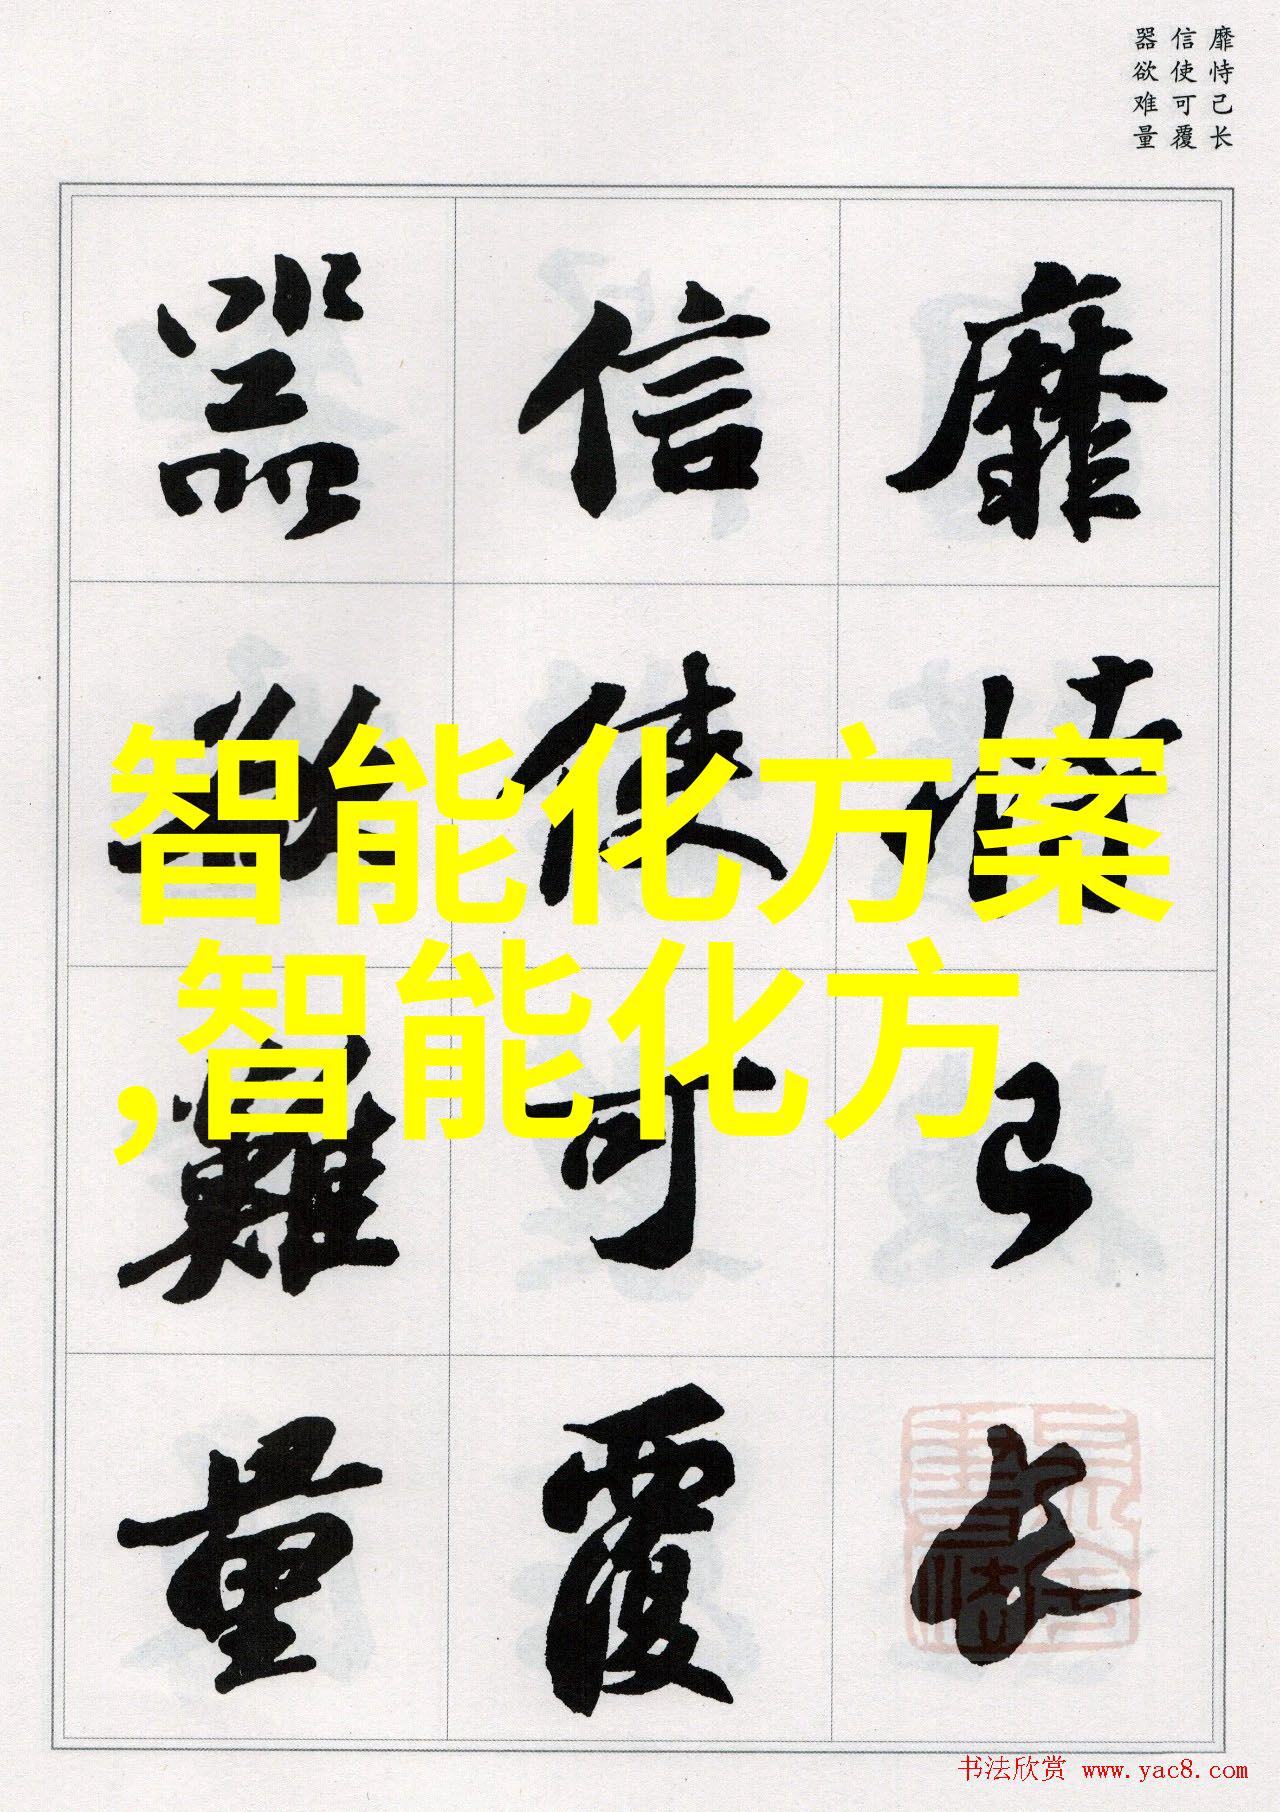 靡恃己长
信使可覆
器欲难量
靡恃己長
信使可覆
器欲難量
智能化方案
,智能化方
书法欣赏 www.yac8.com